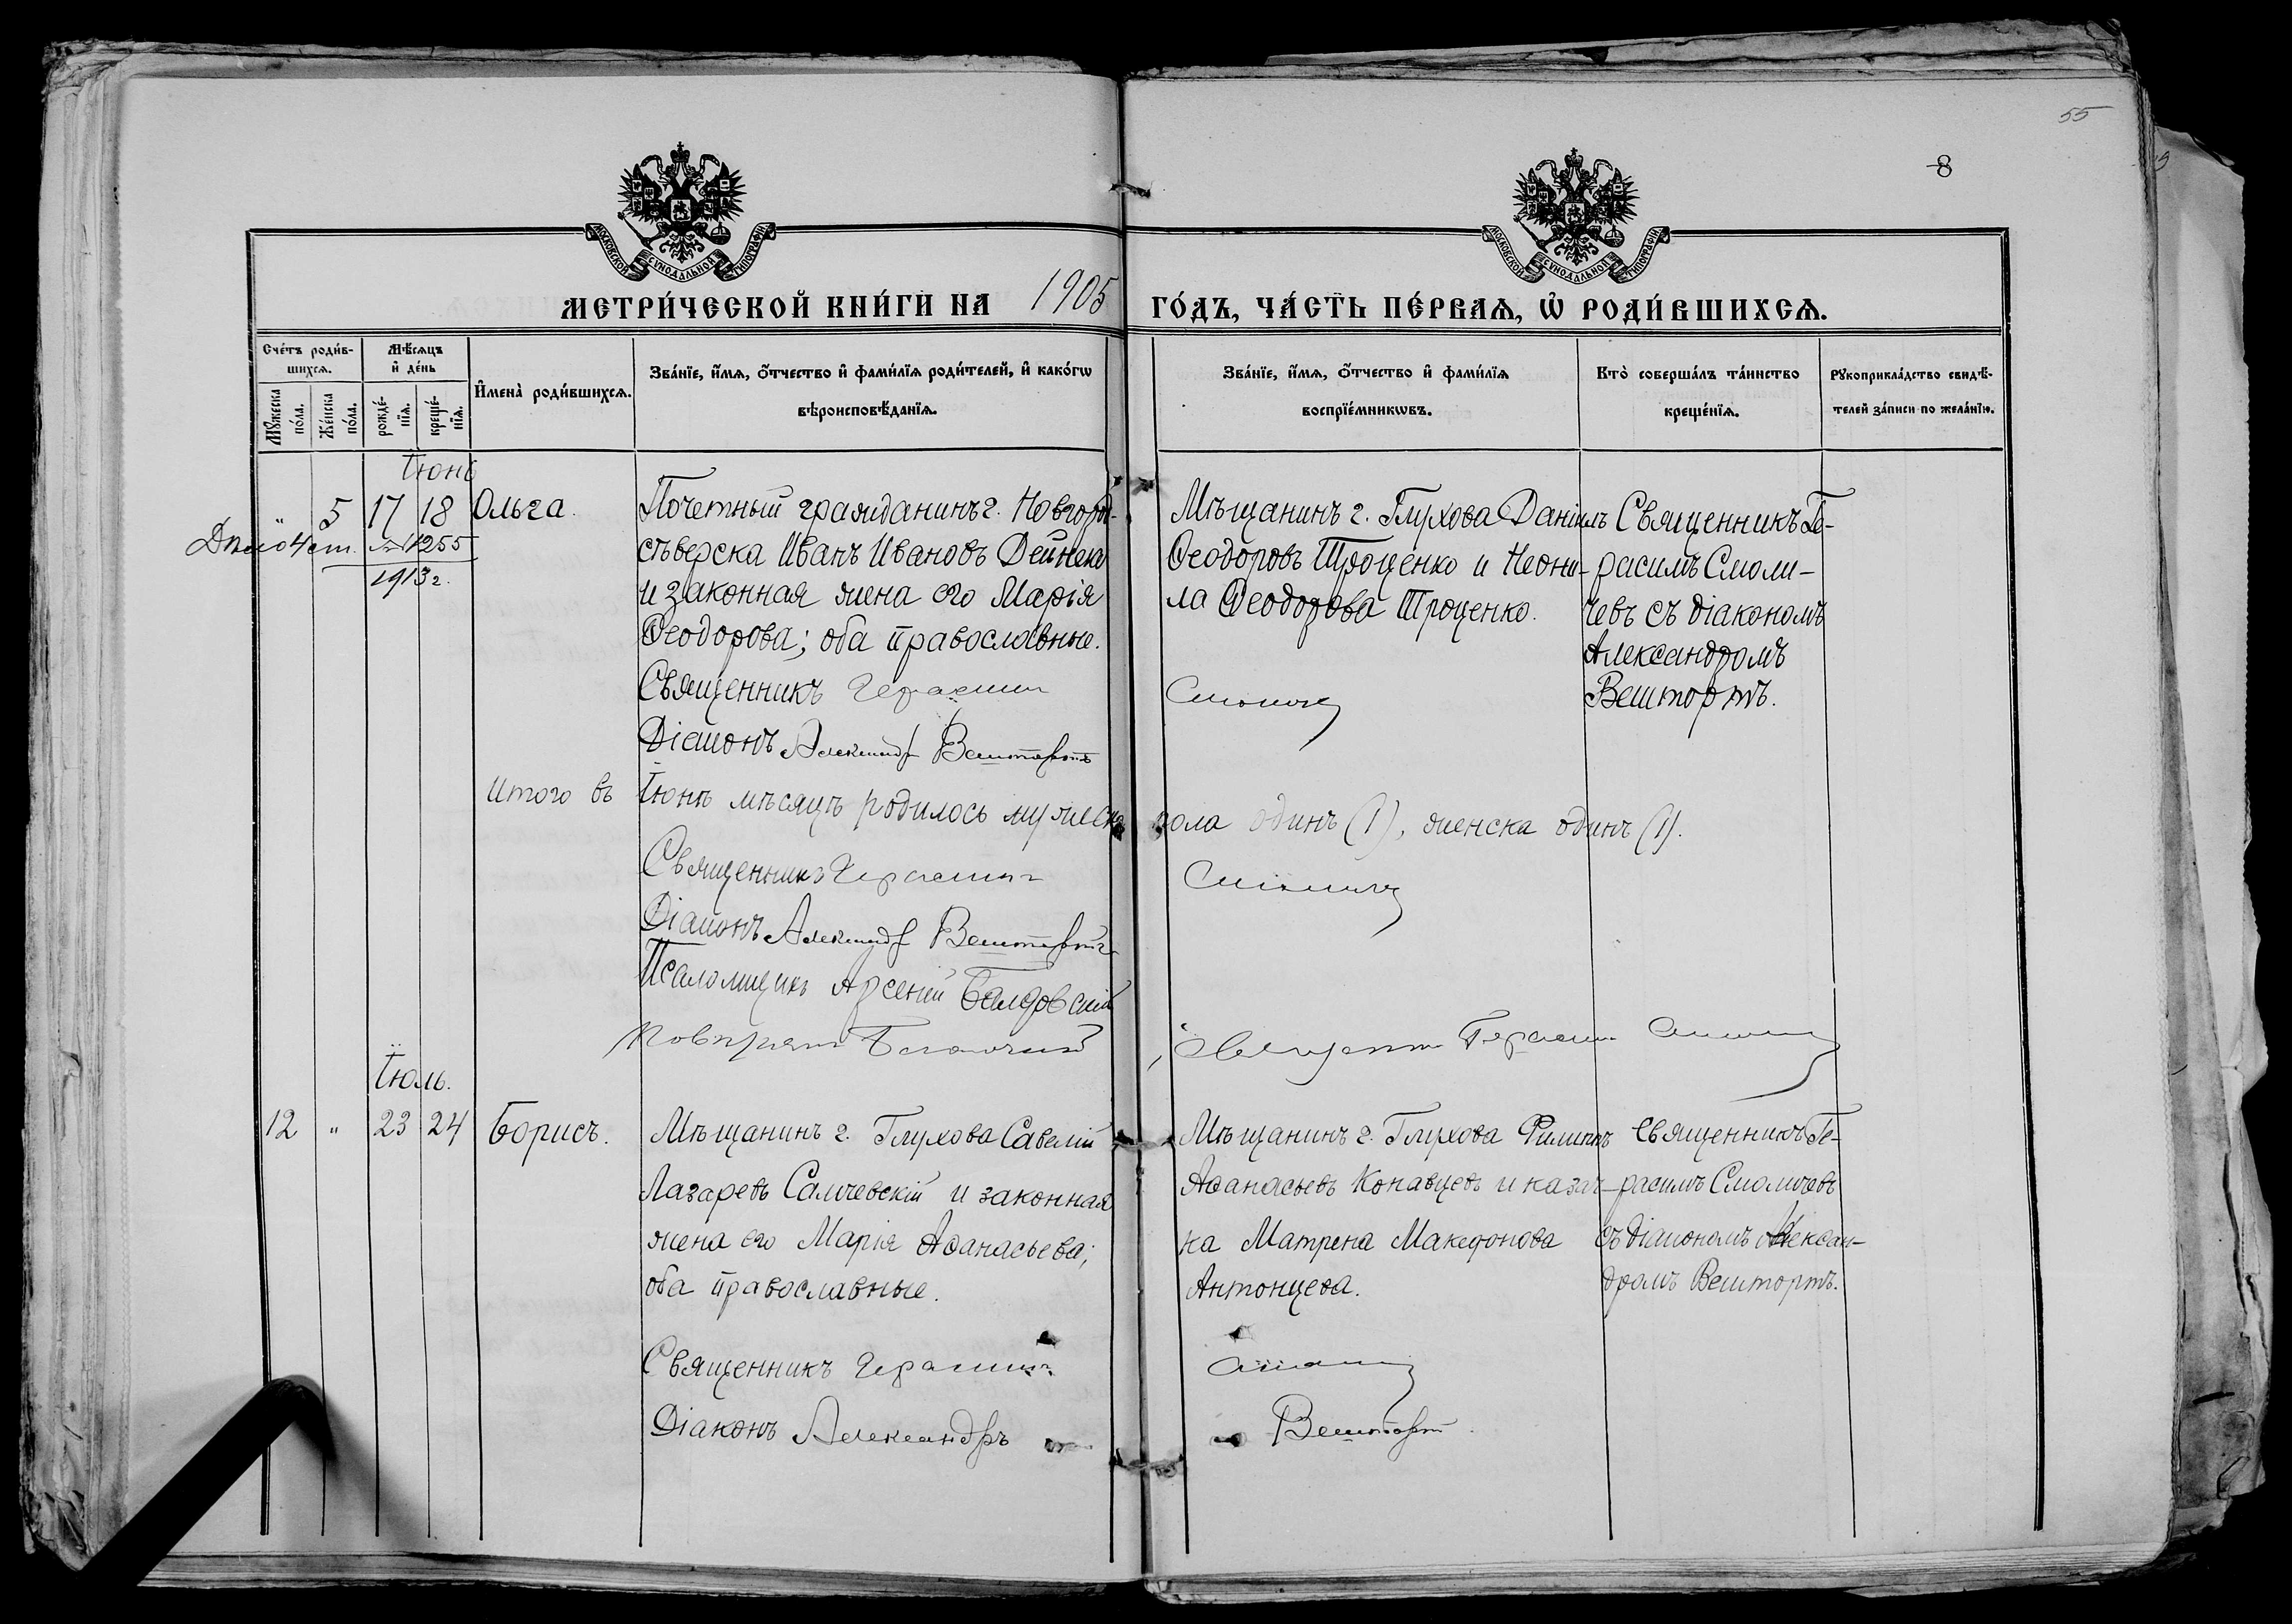 55
8
МОСКОВСКОЙ СУНОДАЛЬНОЙ ТИПОГРАФІИ
МОСКОВСКОЙ СУНОДАЛЬНОЙ ТИПОГРАФІИ
МЕТРИ́ЧЕСКОЙ КНИ́ГИ НА 1905 ГО́ДЪ, ЧА́СТЬ ПЕ́РВАѦ, Ѡ҆ РОДИ́ВШИХСѦ.
Сче́тъ роди́в-
шихсѧ.
Мꙋ́жеска по́ла.
Же́нска по́ла.
Мѣ́сѧцъ и҆ де́нь
рожде́-
нїѧ.
креще́-
нїѧ.
И҆мена̀ роди́вшихсѧ.
Зва́нїе, и҆́мѧ, ѻ҆́тчество и҆ фами́лїѧ роди́телей, и҆ како́гѡ
вѣроисповѣ́данїѧ.
Зва́нїе, и҆́мѧ, ѻ҆́тчество и҆ фами́лїѧ
воспрїе́мникѡвъ.
Кто̀ соверша́лъ та́инство
креще́нїѧ.
Рꙋкоприкла́дство свидѣ́-
телей за́писи по жела́нїю.
Іюнь
" 5 17 18 Ольга.
Дѣло 4 ст. № 1255
1913 г.
Почетный гражданинъ г. Новгород-
сѣверска Иванъ Ивановъ Дейнека
и законная жена его Марія
Ѳеодорова; оба православные.
Священникъ Герасимъ
Діаконъ Александръ Вештортъ
Мѣщанинъ г. Глухова Даніилъ
Ѳеодоровъ Троценко и Неони-
ла Ѳеодорова Троценко.
Смоличевъ
Священникъ Ге-
расимъ Смоли-
чевъ съ діакономъ
Александромъ
Вештортъ.
Итого въ Іюнѣ мѣсяцѣ родилось мужеска пола одинъ (1), женска одинъ (1).
Священникъ Герасимъ Смоличевъ
Діаконъ Александръ Вештортъ
Псаломщикъ Арсеній
Іюль.
12 " 23 24 Борисъ.
Мѣщанинъ г. Глухова Савелій
Лазаревъ Самчевскій и законная
жена его Марія Аѳанасьева;
оба православные.
Священникъ Герасимъ
Діаконъ Александръ
Мѣщанинъ г. Глухова Филиппъ
Аѳанасьевъ Конавцевъ и казач-
ка Матрена Македонова
Антонцева.
Смоличевъ
Вештортъ
Священникъ Ге-
расимъ Смоличевъ
съ діакономъ Алексан-
дромъ Вештортъ.